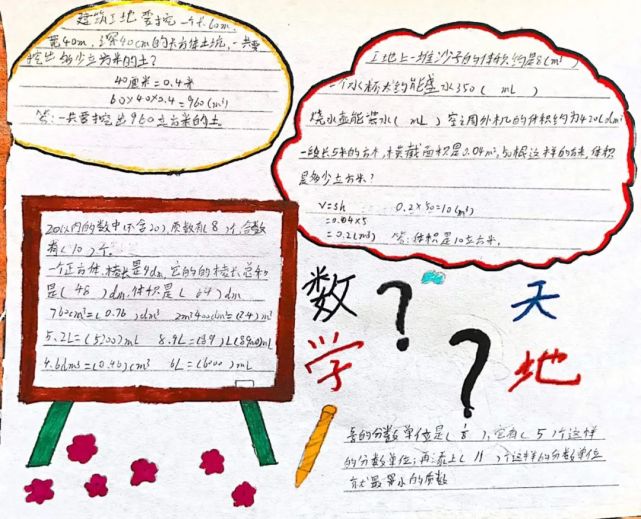 建筑工地要挖一个长60m,
宽40m,深40cm的长方体土坑,一共要
挖出多少立方米的土?
40厘米=0.4米
60×40×0.4=960(m³)
答:一共要挖出960立方米的土。
工地上一堆沙子的体积约是8(m³)
一个水杯大约能盛水350( mL )
烧水壶能装水( mL )空调外机的体积约为420(dm³
一段长5米的方木,横截面积是0.04m²,50根这样的方木,体积
是多少立方米?
V=Sh 0.2×50=10(m³)
=0.04×5
=0.2(m³) 答:体积是10立方米。
20以内的数中(不含20),质数有( 8 )个,合数
有( 10 )个。
一个正方体,棱长是4dm,它的的棱长总和
是( 48 )dm,体积是( 64 )dm
760cm³=( 0.76 )dm³ 2m³400dm³=(2.4)m³
5.2L=(5200)mL 8.9L=(8.9)L(8900)mL
6L=(6000)mL
数学
天地
的分数单位是( ),它有( 5 )个这样
的分数单位,再添上( 11 )个这样的分数单位
就是最小的质数